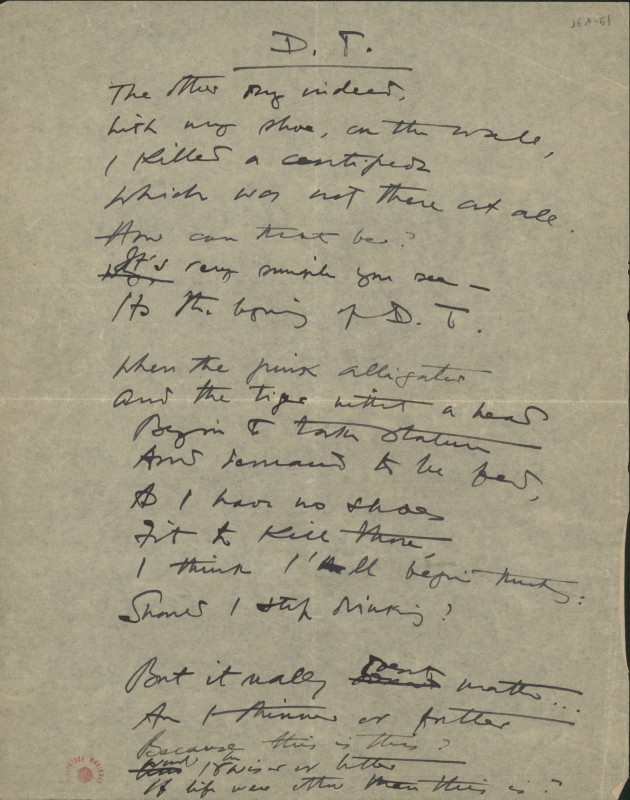 D. T.
The other day indeed,
With my shoe, on the wall,
I killed a centipede
Which was not there at all.
How can that be?
It's very simple you see –
Its the begining of D. T.
When the pink alligator
And the tiger without a head
Begin to take stature
And demand to be fed,
As I have no shoes
Fit to kill those,
I think I'll begin thinking:
Should I stop drinking?
But it really doesnt matter...
Am I thinner or fatter
Because this is this?
Would I be wiser or better
If life were other than this is?